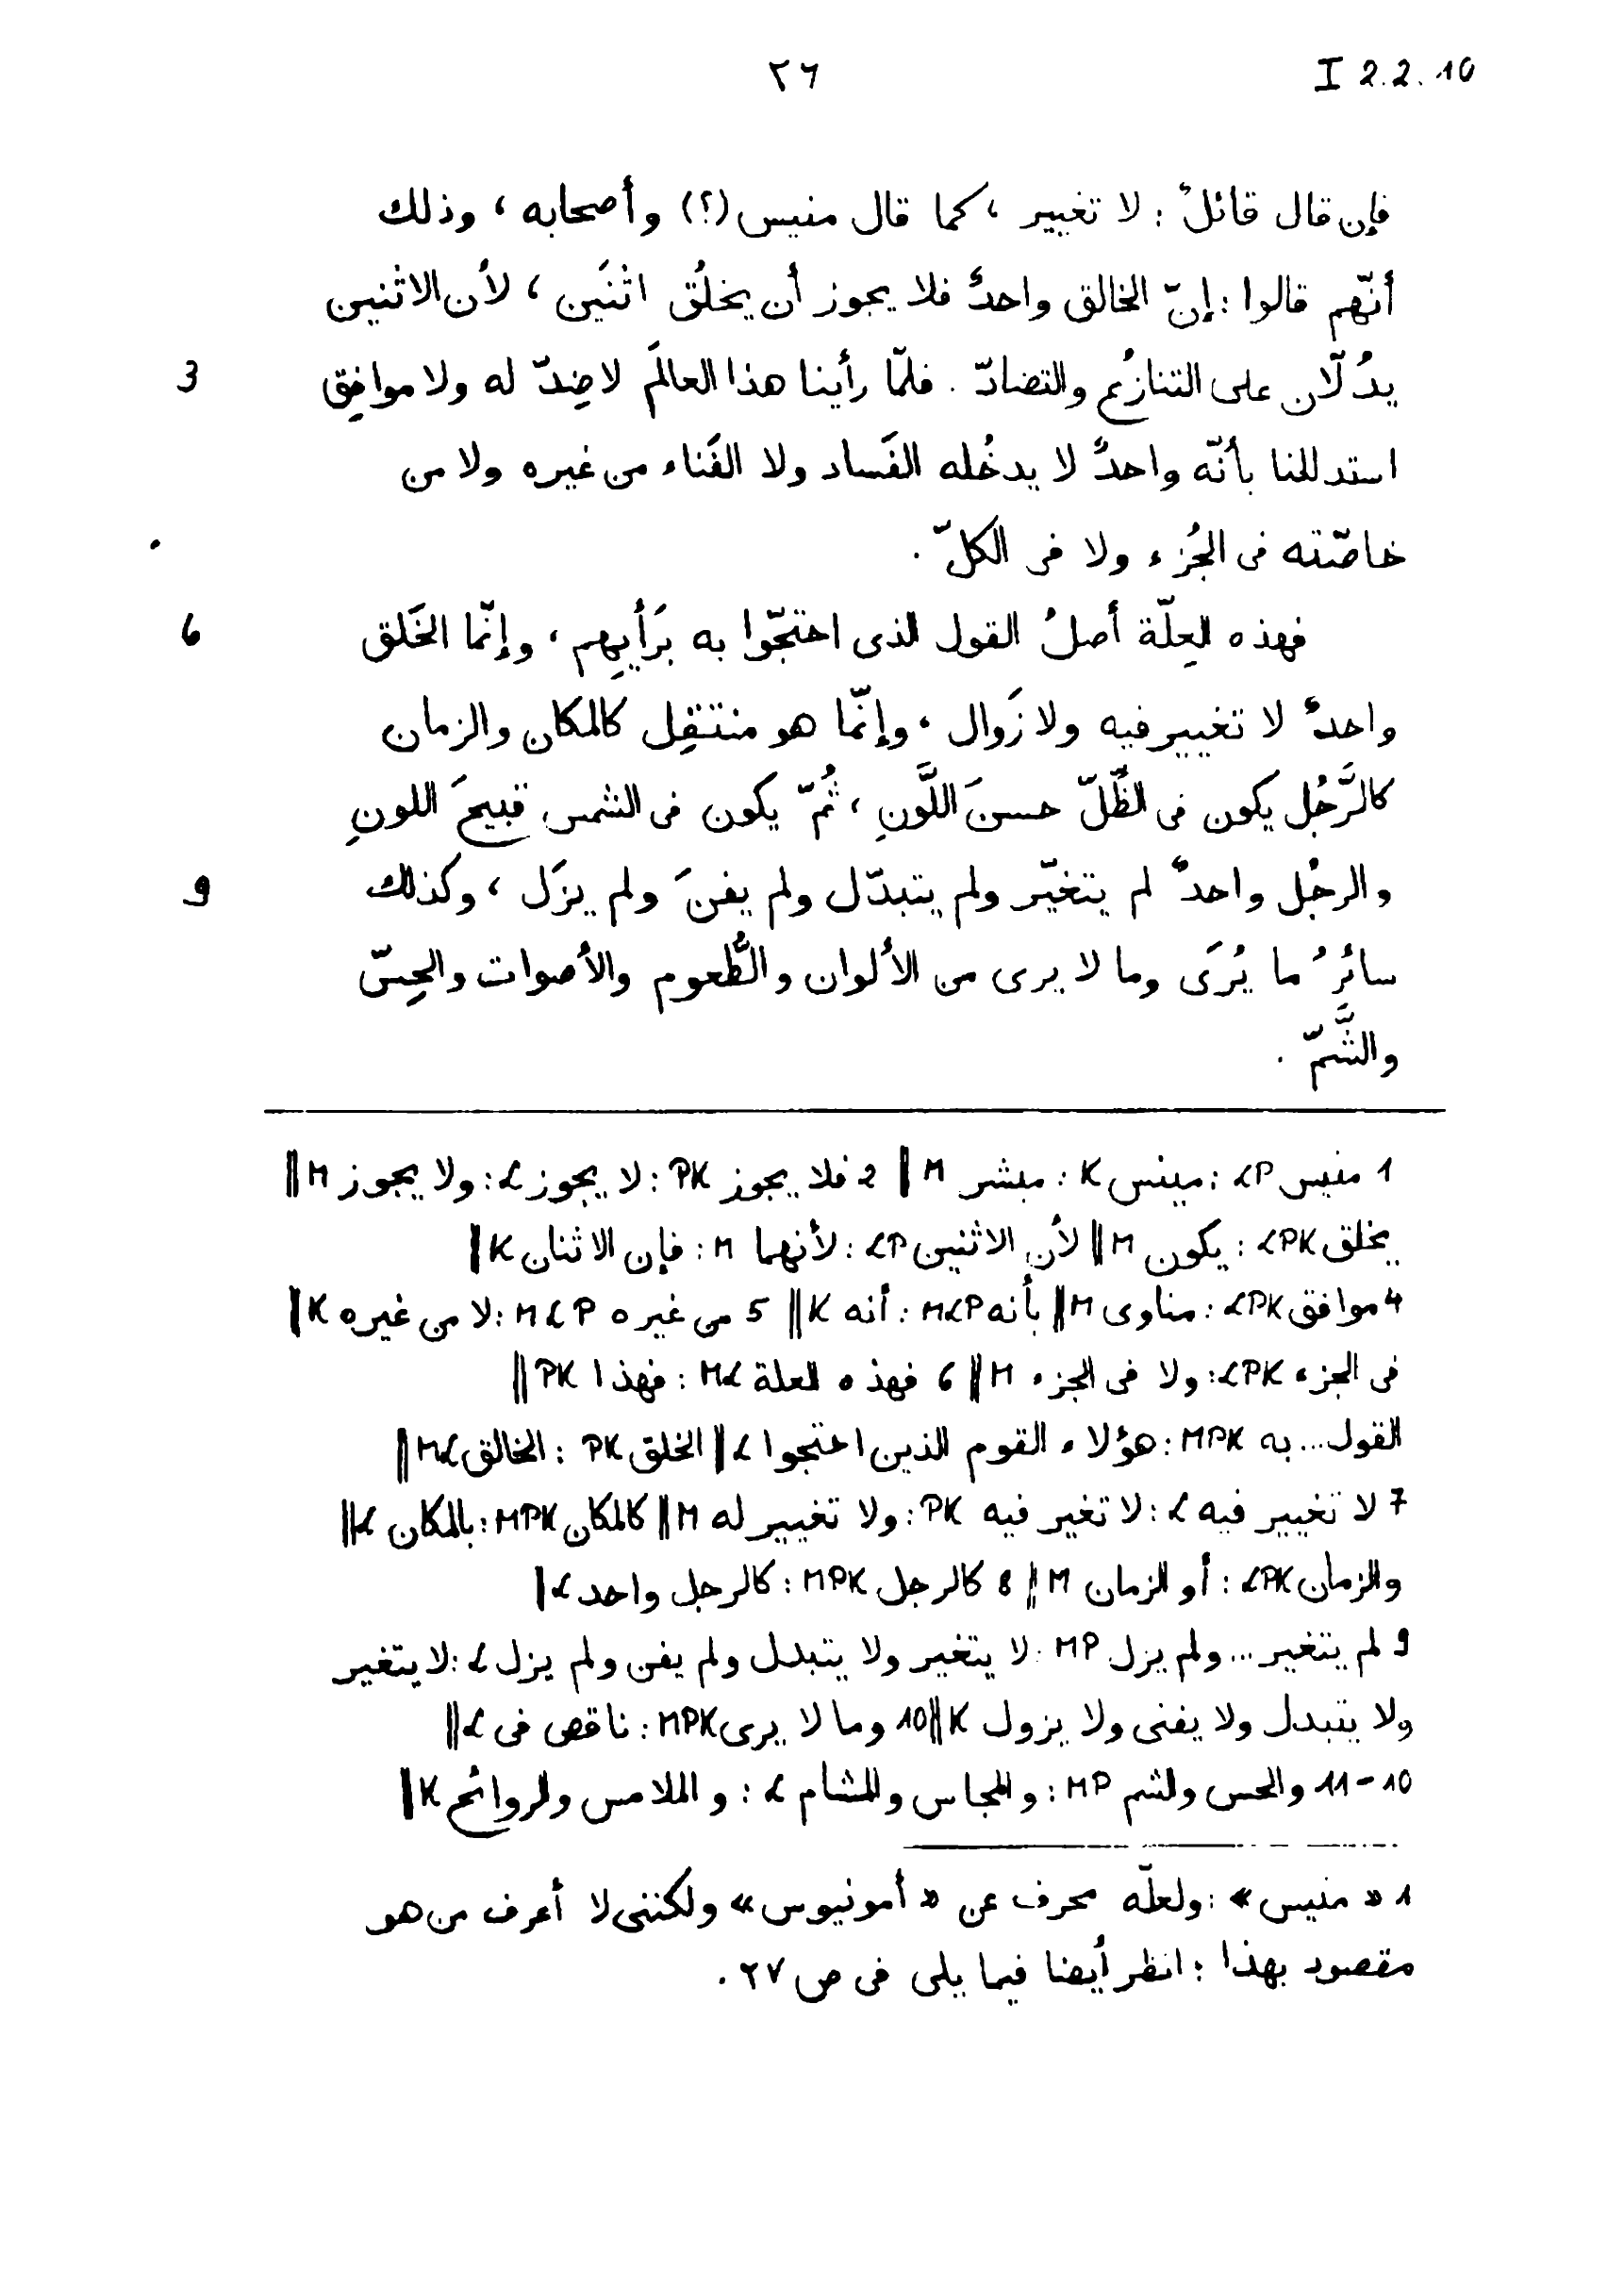 ٢٦ I 2.2.10
فإن قال قائلٌ : لا تغيير ، كما قال منيس (؟) وأصحابه ، وذلك
أنّهم قالوا : إنّ الخالق واحدٌ فلا يجوز أن يخلُق اثنَين ، لأن الاثنين
3 يدُلّان على التنازُع والتضادّ . فلمّا رأينا هذا العالَم لا ضِدّ له ولا موافِق
استدللنا بأنّه واحدٌ لا يدخُله الفَساد ولا الفَناء من غيره ولا من
خاصّته فى الجُزء ولا فى الكلّ .
6 فهذه العِلّة أصلُ القول الذى احتجّوا به برَأيِهم ، وإنّما الخَلق
واحدٌ لا تغيير فيه ولا زَوال ، وإنّما هو منتقِل كالمكان والزمان
كالرَّجُل يكون فى الظِّلّ حسنَ اللَّونِ ، ثُمّ يكون فى الشمس قبيحَ اللونِ
9 والرجُل واحدٌ لم يتغيّر ولم يتبدّل ولم يفنَ ولم يزَل ، وكذلك
سائرُ ما يُرَى وما لا يرى من الألوان والطُّعوم والأصوات والحِسّ
والشَّمّ .
1 منيس LP : مينس K : مبشر M || 2 فلا يجوز PK : لا يجوز L : ولا يجوز M ||
يخلق LPK : يكون M || لأن الاثنين LP : لأنهما M : فإن الاثنان K ||
4 موافق LPK : مناوى M || بأنه MLP : أنه K || 5 من غيره MLP : لا من غيره K ||
فى الجزء LPK : ولا فى الجزء M || 6 فهذه العلة ML : فهذا PK ||
القول... به MPK : هؤلاء القوم الذين احتجوا L || الخلق PK : الخالق ML ||
7 لا تغيير فيه L : لا تغير فيه PK : ولا تغيير له M || كالمكان MPK : بالمكان L ||
والزمان LPK : أو الزمان M || 8 كالرجل MPK : كالرجل واحد L ||
9 لم يتغير... ولم يزل MP : لا يتغير ولا يتبدل ولم يفن ولم يزل L : لا يتغير
ولا يتبدل ولا يفنى ولا يزول K || 10 وما لا يرى MPK : ناقص فى L ||
10-11 والحس والشم MP : والمجاس والمشام L : والملامس والروائح K ||
1 « منيس » : ولعلّه محرف عن « أمونيوس » ولكننى لا أعرف من هو
مقصود بهذا ؛ انظر أيضا فيما يلى فى ص ٢٧ .